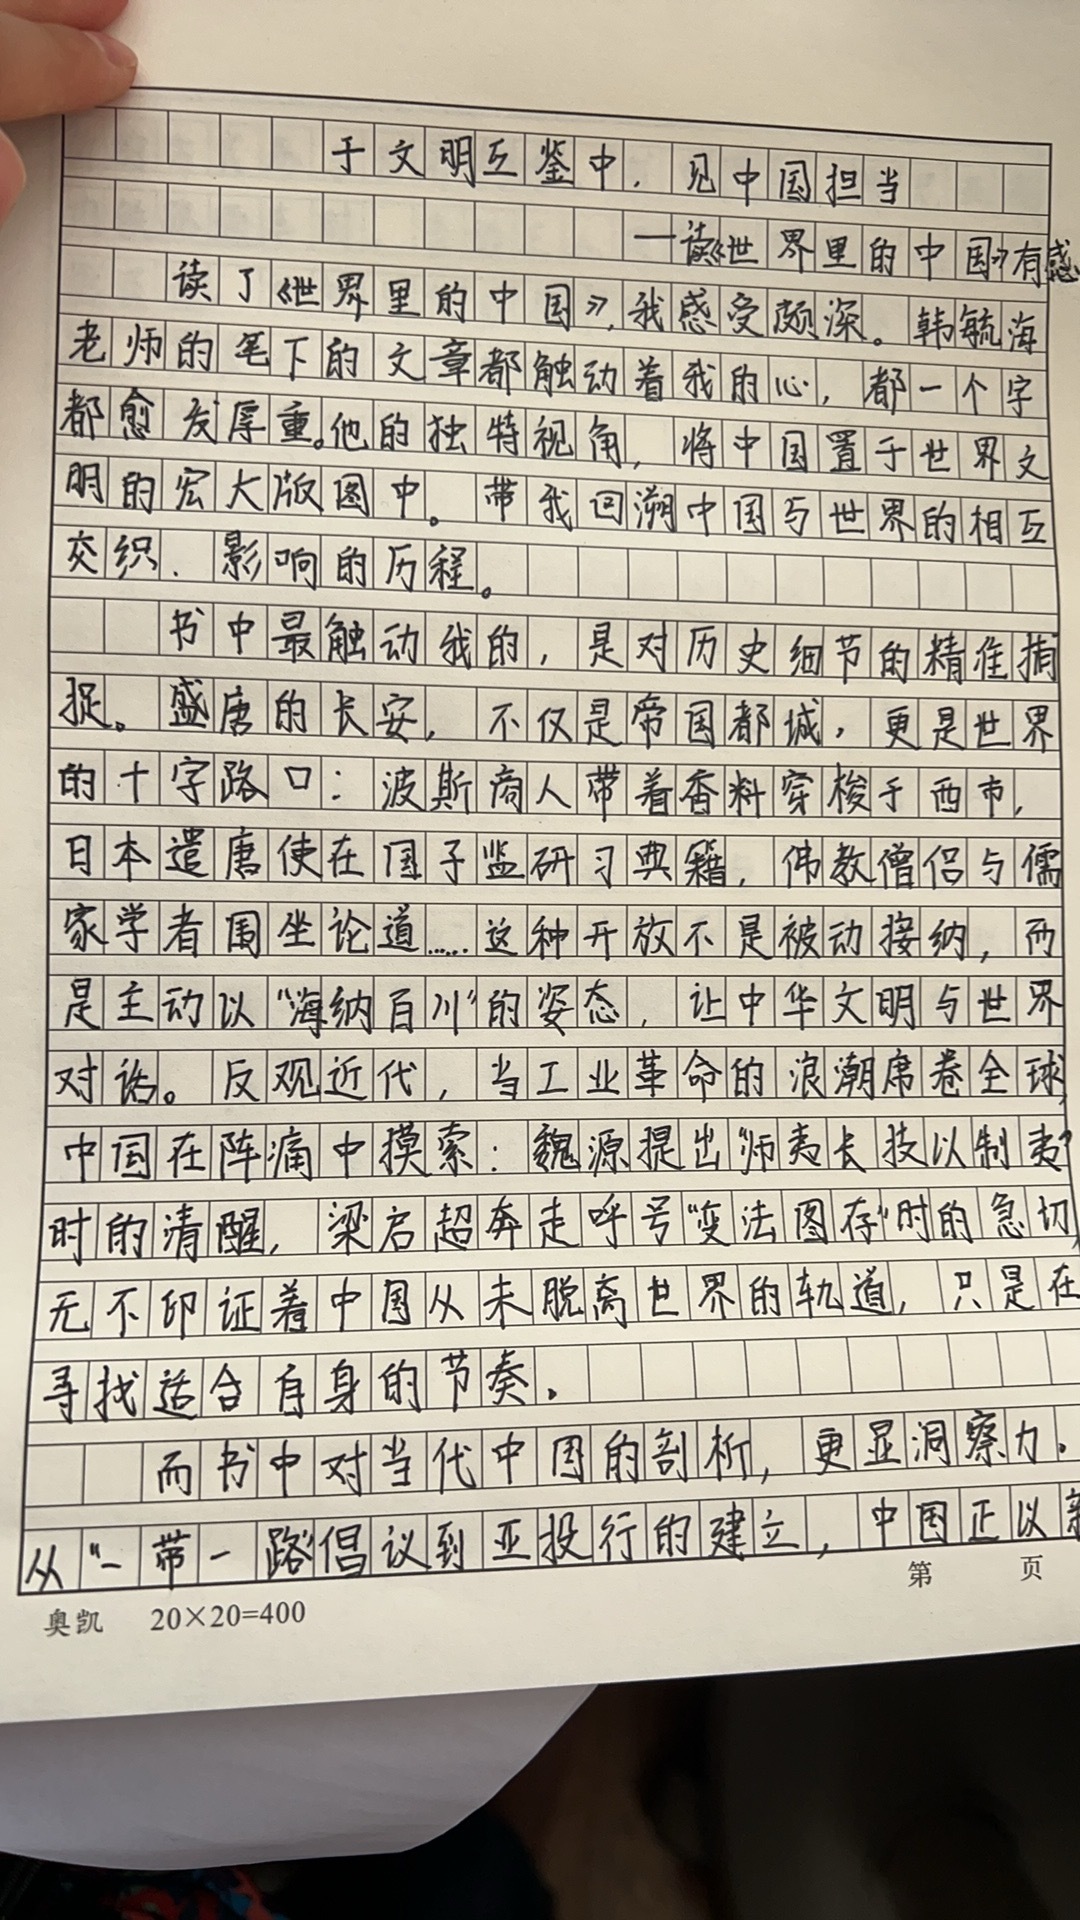 于文明互鉴中，见中国担当
——读《世界里的中国》有感
读了《世界里的中国》，我感受颇深。韩毓海
老师的笔下的文章都触动着我的心，都一个字
都愈发厚重。他的独特视角，将中国置于世界文
明的宏大版图中。带我回溯中国与世界的相互
交织、影响的历程。
书中最触动我的，是对历史细节的精准捕
捉。盛唐的长安，不仅是帝国都城，更是世界
的十字路口：波斯商人带着香料穿梭于西市，
日本遣唐使在国子监研习典籍，佛教僧侣与儒
家学者围坐论道……这种开放不是被动接纳，而
是主动以“海纳百川”的姿态，让中华文明与世界
对话。反观近代，当工业革命的浪潮席卷全球，
中国在阵痛中摸索：魏源提出“师夷长技以制夷”
时的清醒，梁启超奔走呼号“变法图存”时的急切，
无不印证着中国从未脱离世界的轨道，只是在
寻找适合自身的节奏。
而书中对当代中国的剖析，更显洞察力。
从“一带一路”倡议到亚投行的建立，中国正以
第 页
奥凯 20×20=400